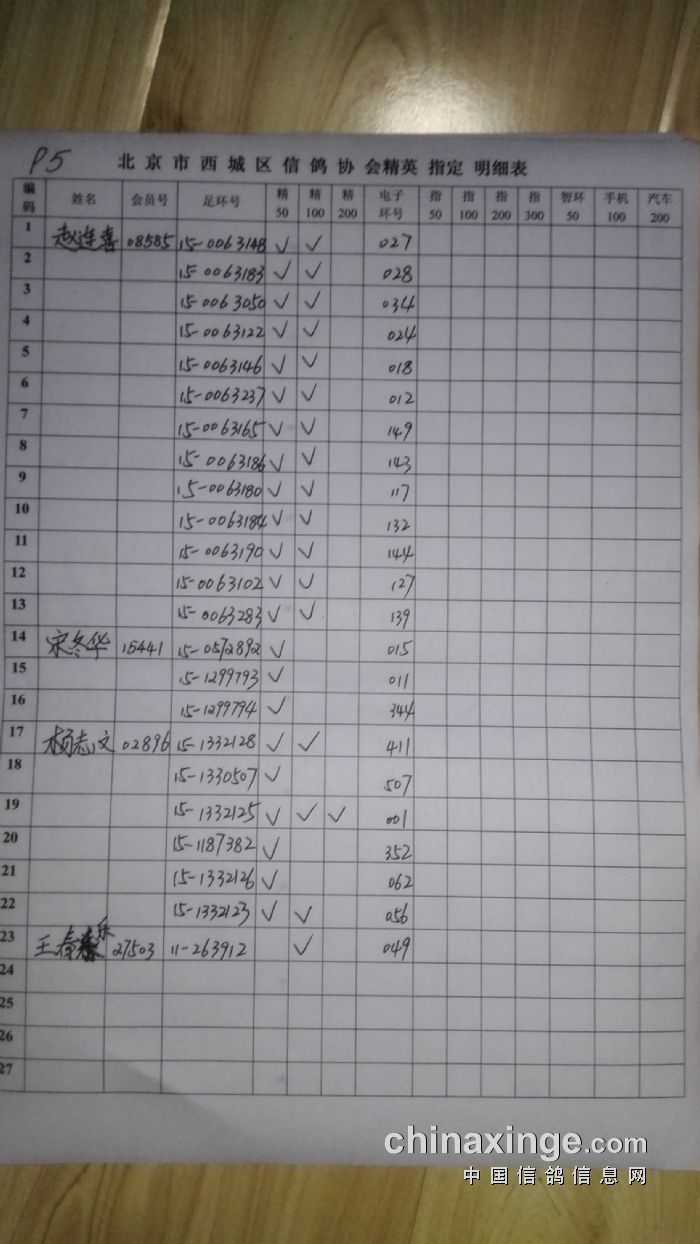 P5 北京市西城区信鸽协会精英 指定 明细表
编码 姓名 会员号 足环号 精50 精100 精200 电子环号 指50 指100 指200 指300 智环50 手机100 汽车200
1 赵连喜 08585 15-0063148 √ √ 027
2 15-0063183 √ √ 028
3 15-0063050 √ √ 034
4 15-0063122 √ √ 024
5 15-0063146 √ √ 018
6 15-0063237 √ √ 012
7 15-0063165 √ √ 149
8 15-0063186 √ √ 143
9 15-0063180 √ √ 117
10 15-0063184 √ √ 132
11 15-0063190 √ √ 144
12 15-0063102 √ √ 127
13 15-0063283 √ √ 139
14 宋冬华 15441 15-0572892 √ 015
15 15-1299793 √ 011
16 15-1299794 √ 344
17 杨志文 02896 15-1332128 √ √ 411
18 15-1330507 √ 507
19 15-1332125 √ √ √ 001
20 15-1187382 √ 352
21 15-1332126 √ 062
22 15-1332123 √ √ 056
23 王春乐 27503 11-263912 √ 049
24
25
26
27
chinaxinge.com
中国信鸽信息网